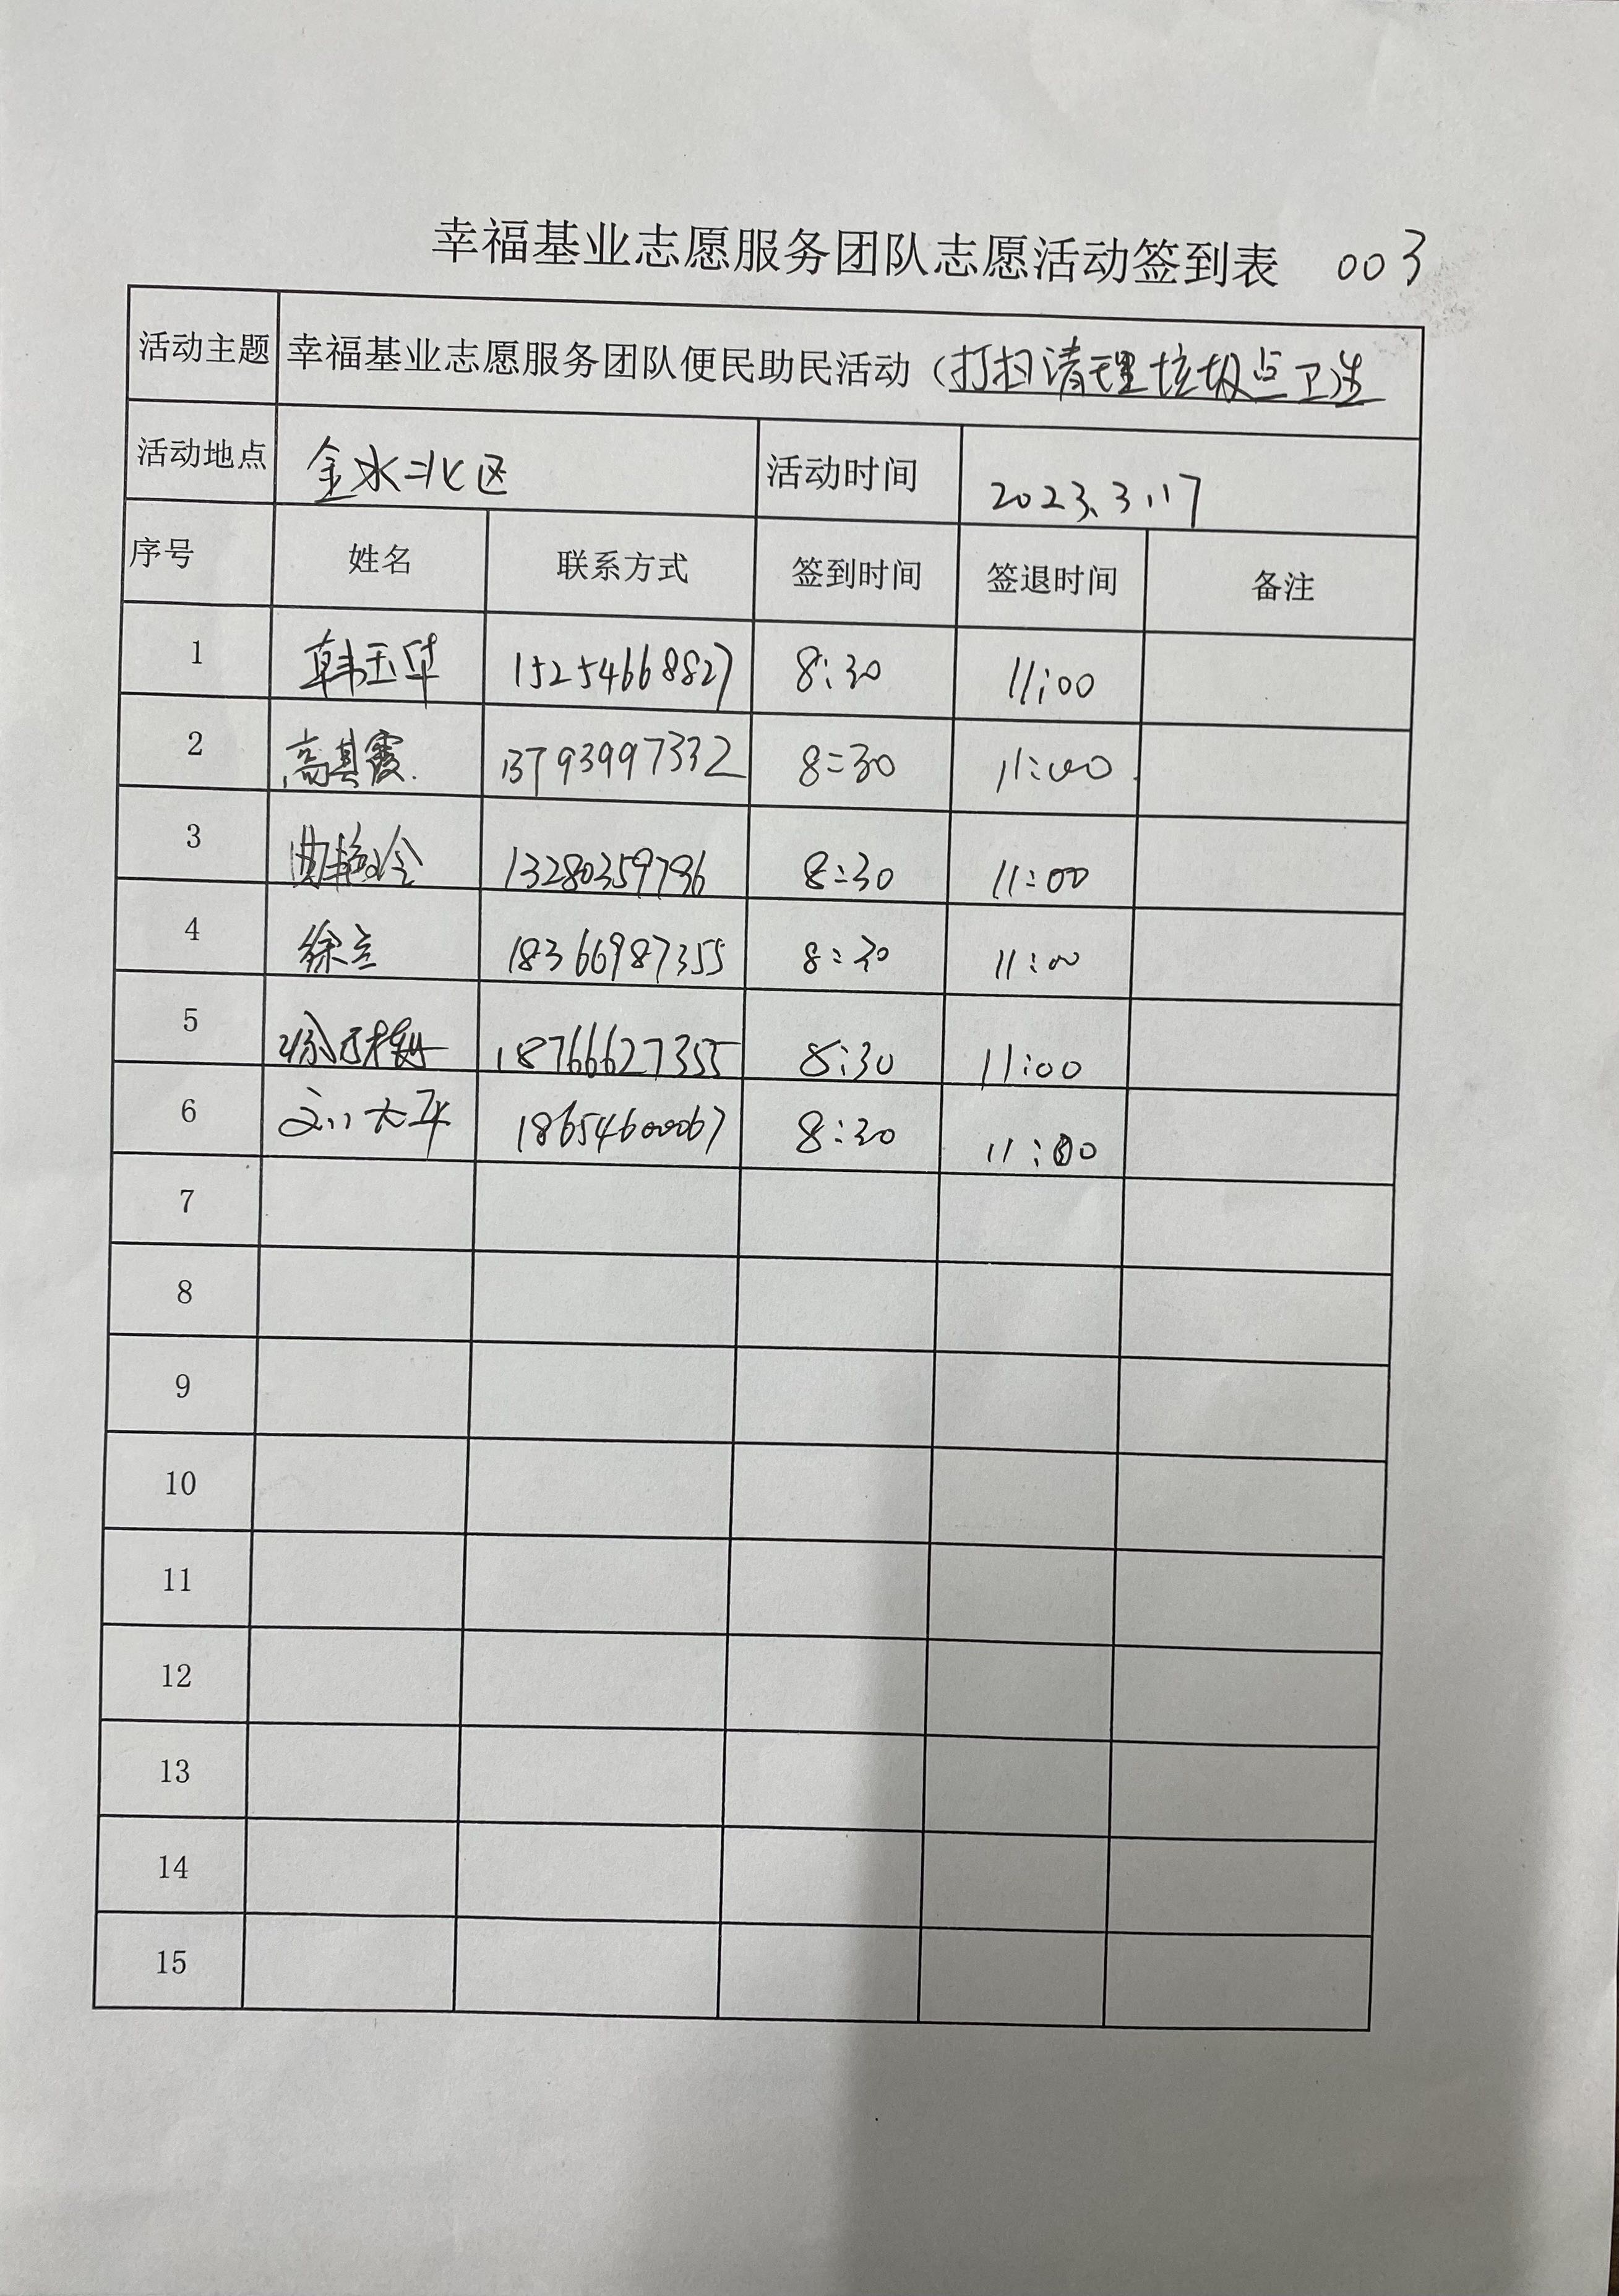 幸福基业志愿服务团队志愿活动签到表 003
活动主题 幸福基业志愿服务团队便民助民活动（打扫清理垃圾点卫生
活动地点 金水北区 活动时间 2023.3.17
序号 姓名 联系方式 签到时间 签退时间 备注
1 韩玉华 15254668827 8:30 11:00
2 高其霞 13793997332 8:30 11:00
3 曲艳玲 13280359796 8:30 11:00
4 徐立 18366987355 8:30 11:00
5 18766627355 8:30 11:00
6 刘太平 18654600067 8:30 11:00
7
8
9
10
11
12
13
14
15